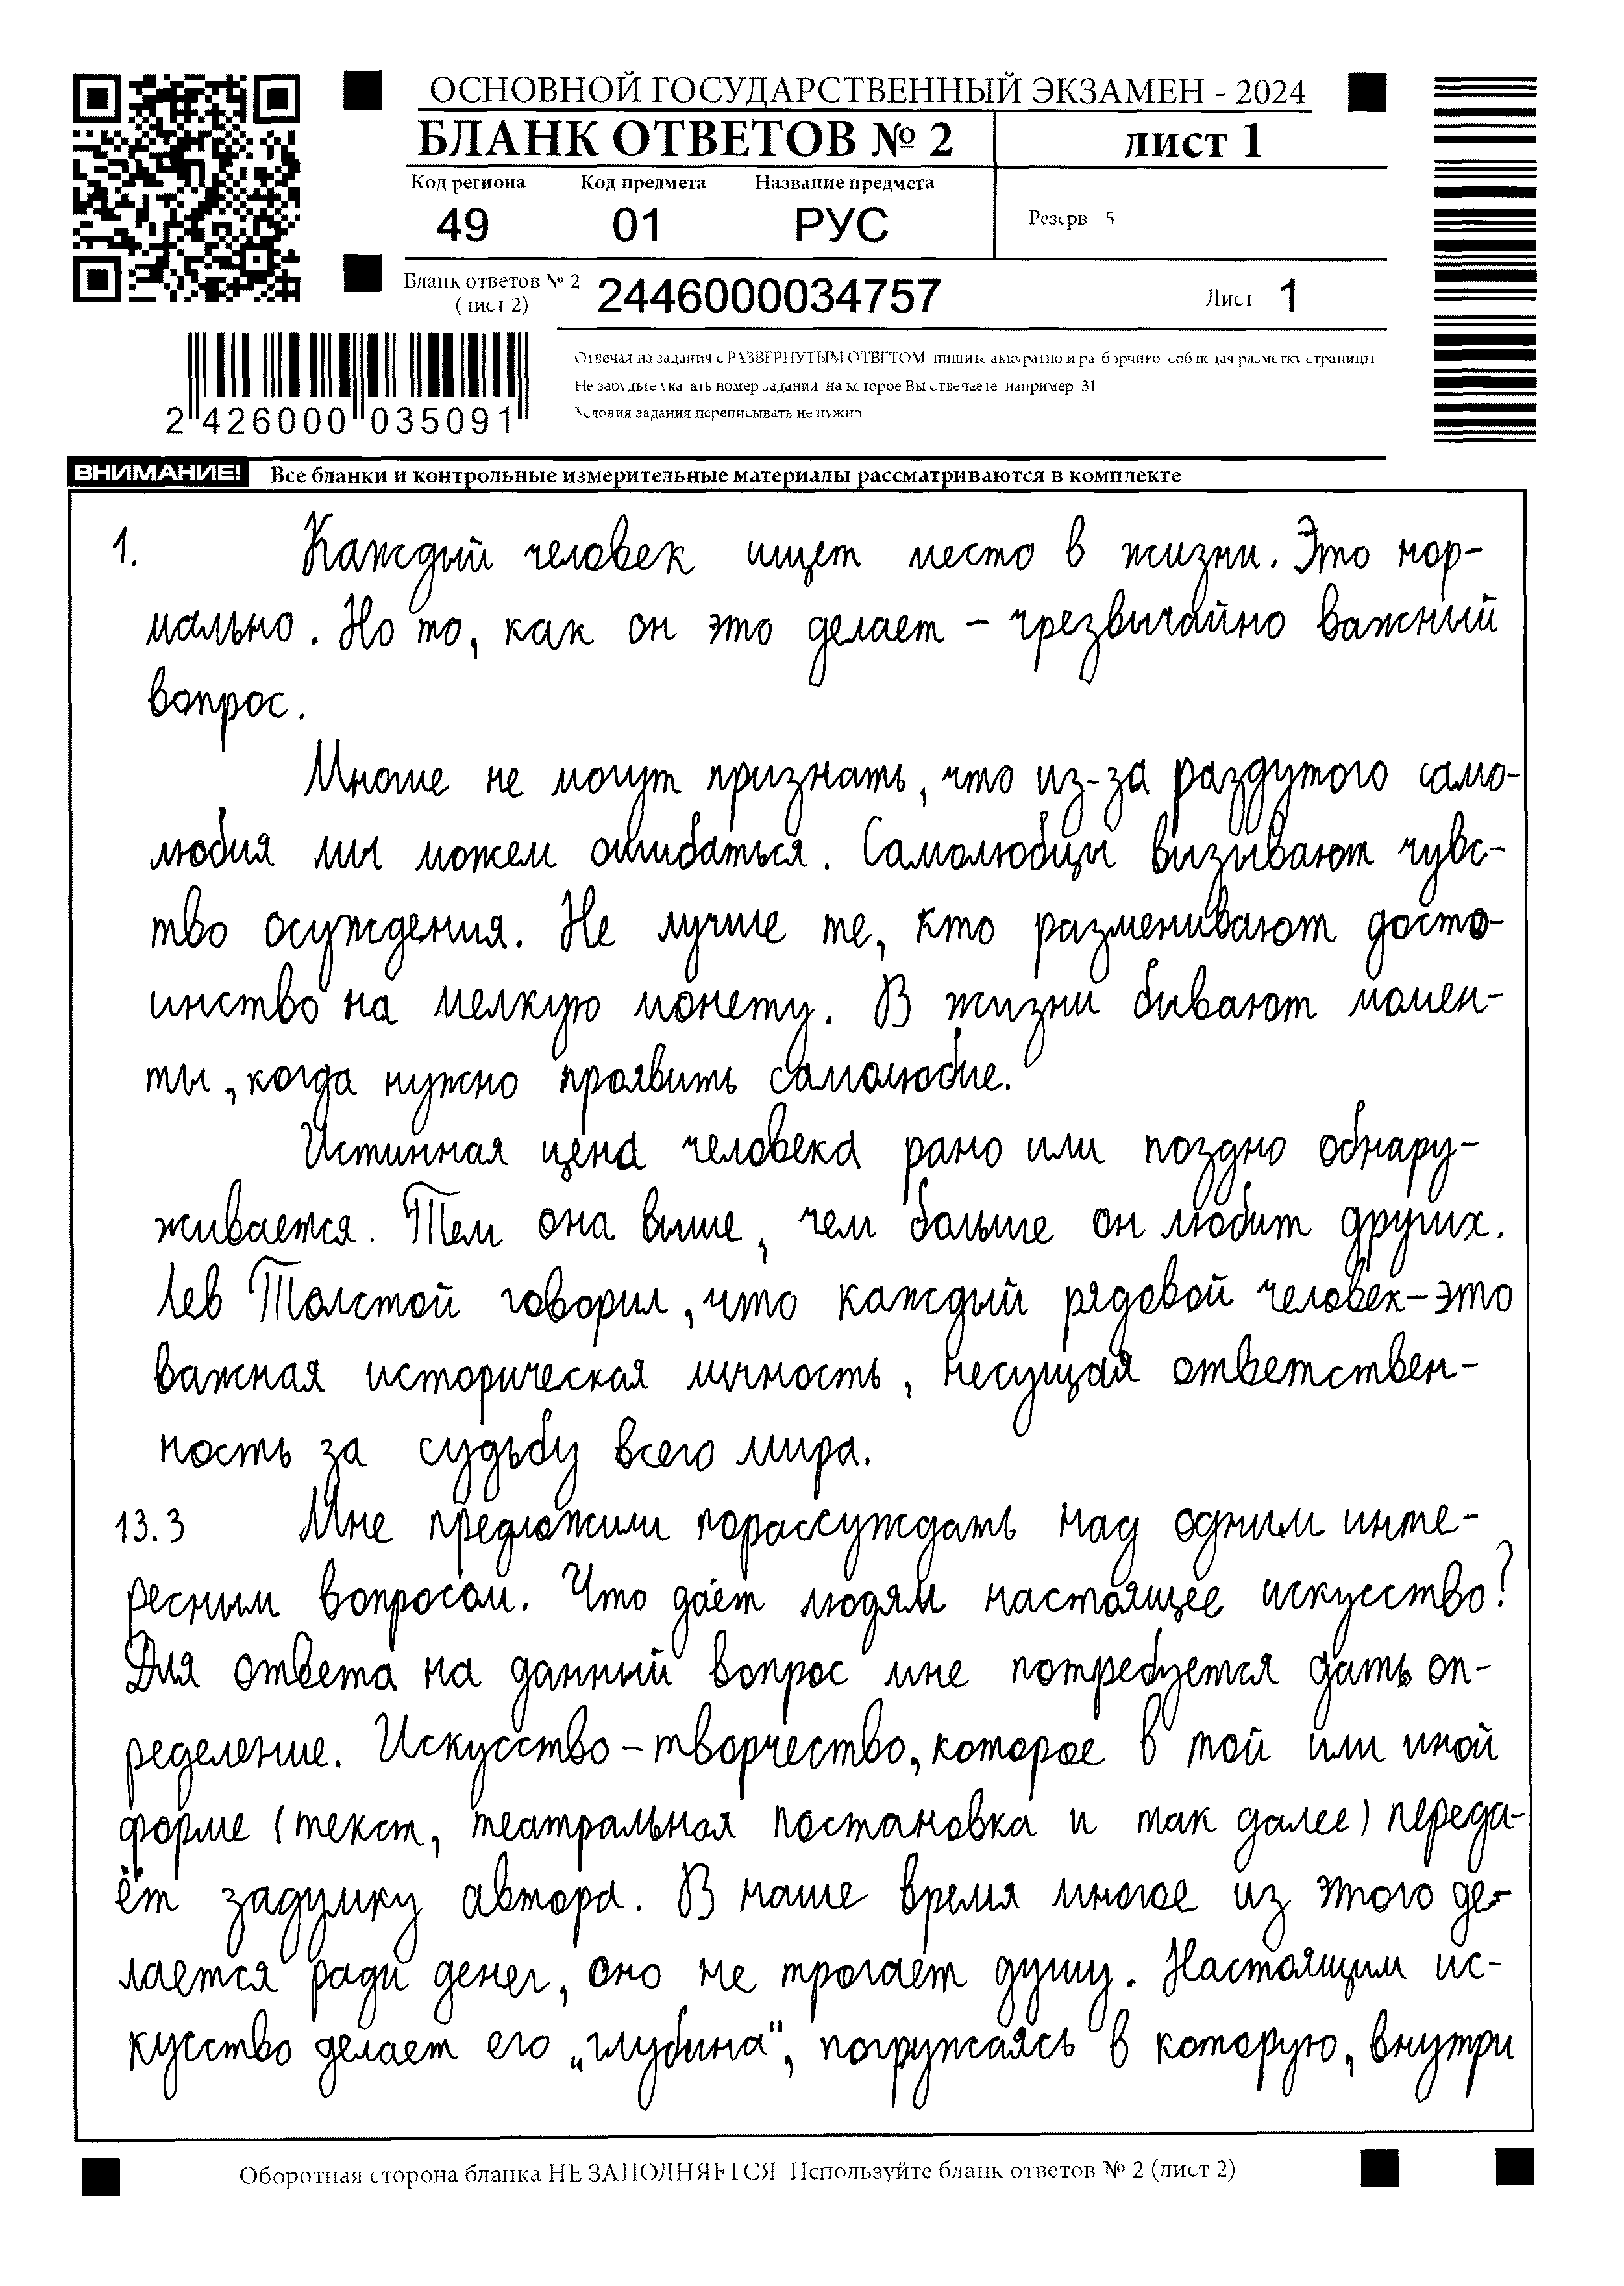 ОСНОВНОЙ ГОСУДАРСТВЕННЫЙ ЭКЗАМЕН - 2024
БЛАНК ОТВЕТОВ № 2
ЛИСТ 1
Код региона Код предмета Название предмета
49 01 РУС
Резерв 5
Бланк ответов № 2
(лист 2)
2446000034757
Лист 1
Отвечая на задания с РАЗВЕРНУТЫМ ОТВЕТОМ пишите аккуратно и разборчиво соблюдая разметку страницы
Не забудьте указать номер задания на которое Вы отвечаете например 31
Условия задания переписывать не нужно
2 426000 035091
ВНИМАНИЕ! Все бланки и контрольные измерительные материалы рассматриваются в комплекте
1. Каждый человек ищет место в жизни. Это нор-
мально. Но то, как он это делает – чрезвычайно важный
вопрос.
Многие не могут признать, что из-за раздутого само-
любия мы можем ошибаться. Самолюбцы вызывают чувс-
тво осуждения. Не лучше те, кто разменивают досто-
инство на мелкую монету. В жизни бывают момен-
ты, когда нужно проявить самолюбие.
Истинная цена человека рано или поздно обнару-
живается. Тем она выше, чем больше он любит других.
Лев Толстой говорил, что каждый рядовой человек – это
важная историческая личность, несущая ответствен-
ность за судьбу всего мира.
13.3 Мне предложили порассуждать над одним инте-
ресным вопросом. Что даёт людям настоящее искусство?
Для ответа на данный вопрос мне потребуется дать оп-
ределение. Искусство – творчество, которое в той или иной
форме (текст, театральная постановка и так далее) переда-
ёт задумку автора. В наше время многое из этого де-
лается ради денег, оно не трогает душу. Настоящим ис-
кусство делает его „глубина“, погружаясь в которую, внутри
Оборотная сторона бланка НЕ ЗАПОЛНЯЕТСЯ Используйте бланк ответов № 2 (лист 2)